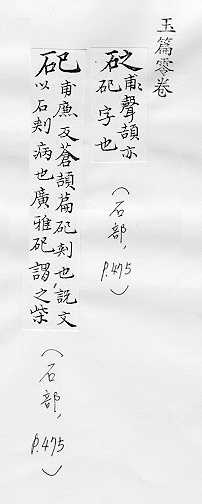 玉篇零卷
砭
甫聲頡亦
砭字也
(石部, p.475)
砭
甫廉反蒼頡篇砭刻也説文
以石刾病也廣雅砭謂之柴
(石部, p.475)